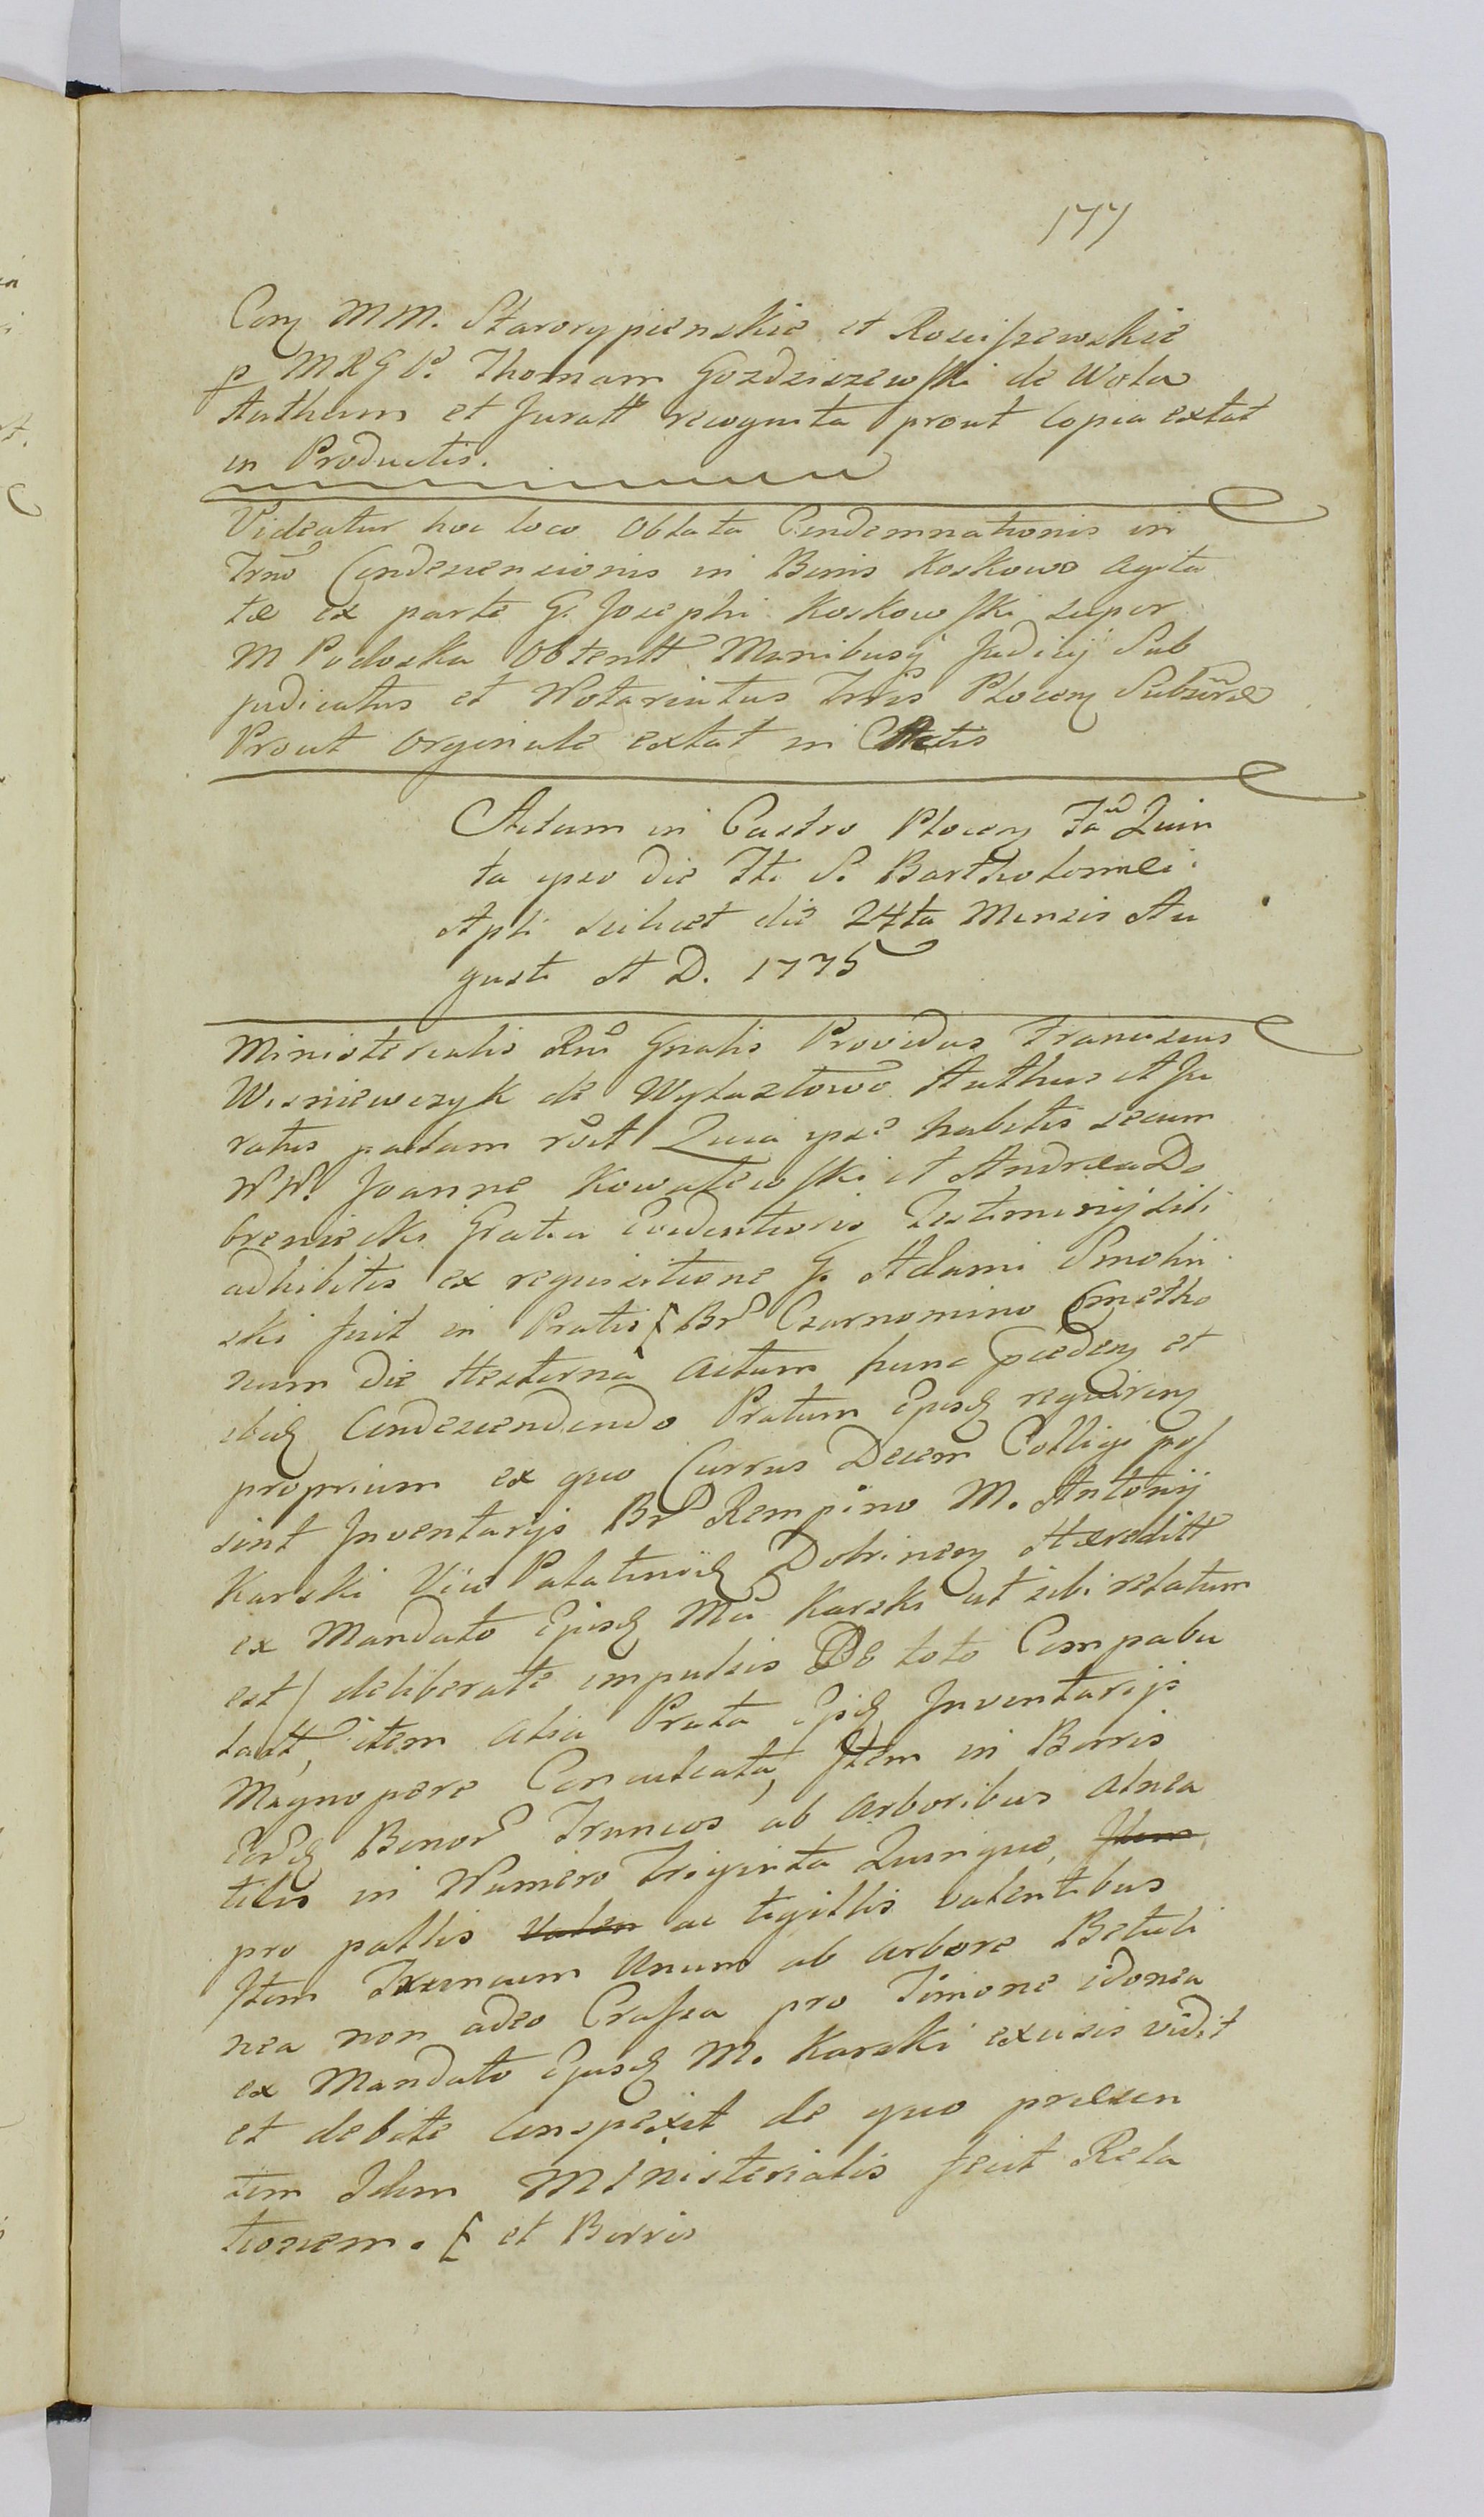 177
Cony MM. Starorypienskie et Rosciszewskie
p MRGP. Thomam Gozdziszewski de Wola
Authum et Juratt recognita prout Copia extat
in Productis.
Videatur hoc loco Oblata Condemnationis in
Trno Condescensionis in Bonis Koskowo agita
tae ex parte G. Josephi Koskowski super
M Podoska Obtentt Manibusq Judicij Sub
judicatus et Notariatus Trris Plocen Subscrae
Prout orginale extat in Actis
Actum in Castro Plocen Fa Quin
ta ipso die Fti S. Bartholomei
Apli scilicet die 24ta Mensis Au
gusti A D. 1775
Ministerialis Rni Gnalis Providus Franciscus
Wisniewczyk de Wylazlowo Authus et Ju
ratus palam rcit Quia ipse habitis secum
NN. Joanne Kowalewski et Andrea Do
breniecki Gratia Evidentioris Testimonij sibi
adhibitis ex requisitione G. Adami Smolin
ski fuit in Pratis [ Br Czarnomino Cmetho
num die Hesterna actum hunc pcedeη et
ibid Condescendendo Pratum Ejusd requiren
proprium ex quo Currus Decem Colligi pos
sint Inventarijs Br Rempino M. Antonij
Karski Vice Palatinid Dobrinen Haereditt
ex Mandato Ejusd Mci Karski ut sibi relatum
est / deliberate impulsis De toto Compabu
latt, item alia Prata Ejsd Inventarijs
Magnopere Conculcata, Item in Borris
Eord Bonor Truncos ab arboribus alnea
tilis in Numero Triginta Quinque, Item
pro pallis valen ac tigillis valentibus
Item Truncum Unum ab arbore Betuli
nea non adeo Crassa pro Timone idonea
ex Mandato Ejusd M. Karski excisis vidit
et debite conspexit de quo praesen
tem Idem Ministerialis fecit Rela
tionem. [ et Borris